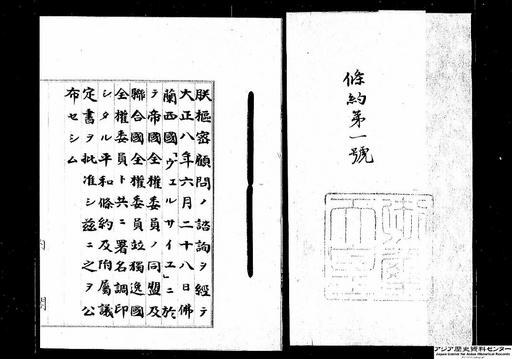 條約第一號
朕樞密顧問ノ諮詢ヲ經テ
大正八年六月二十八日佛
蘭西國「ヴェルサイエ」ニ於
テ帝國全權委員ノ同盟及
聯合國全權委員竝獨逸國
全權委員ト共ニ署名調印
シタル平和條約及附屬議
定書ヲ批准シ茲ニ之ヲ公
布セシム
内閣
アジア歴史資料センター
Japan Center for Asian Historical Records